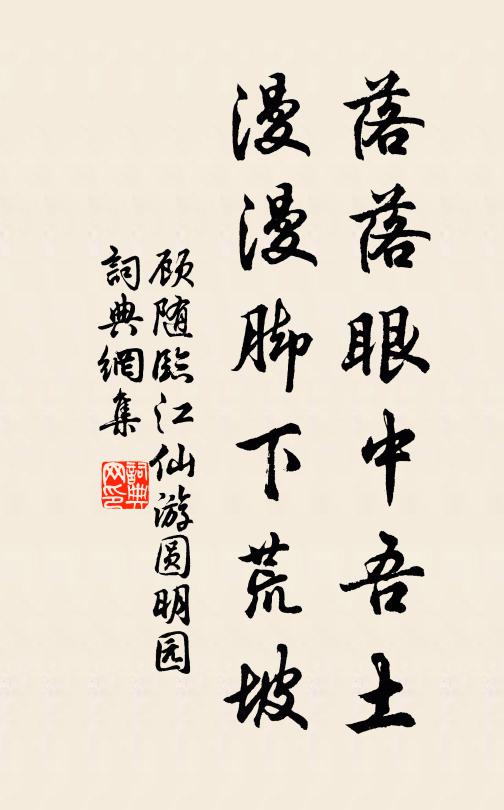 落落眼中吾土
漫漫脚下荒坡
顾随臨江仙游圆明园
詞典網集
詞典网印